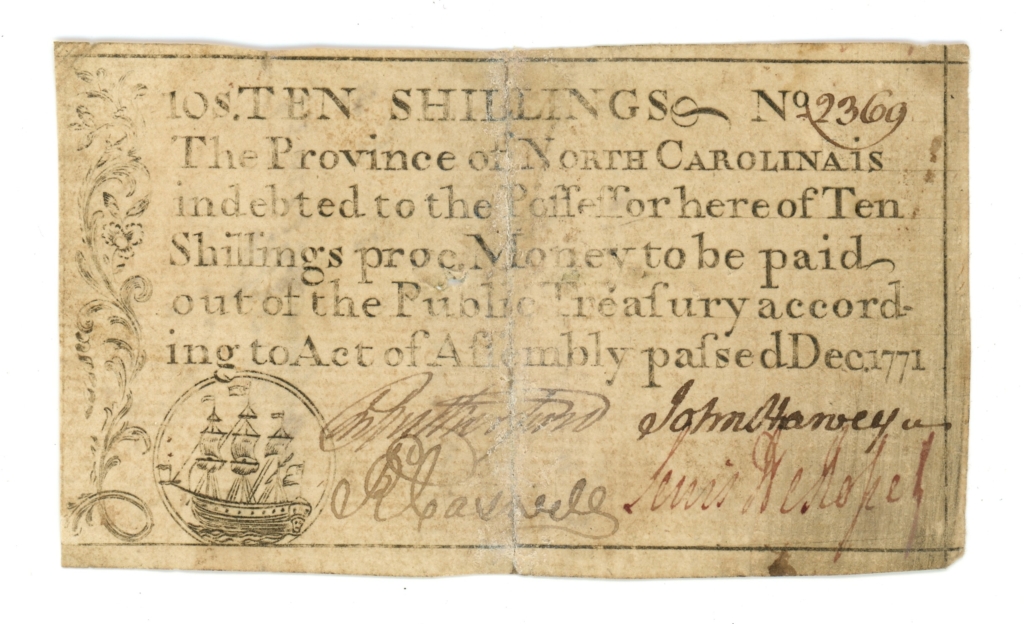 10s. TEN SHILLINGS No. 2369
The Province of NORTH CAROLINA is
indebted to the Poſſeſſor here of Ten
Shillings proc. Money to be paid
out of the Public Treaſury accord-
ing to Act of Aſſembly paſsed Dec. 1771
John Harvey
Rd Caswell
Lewis